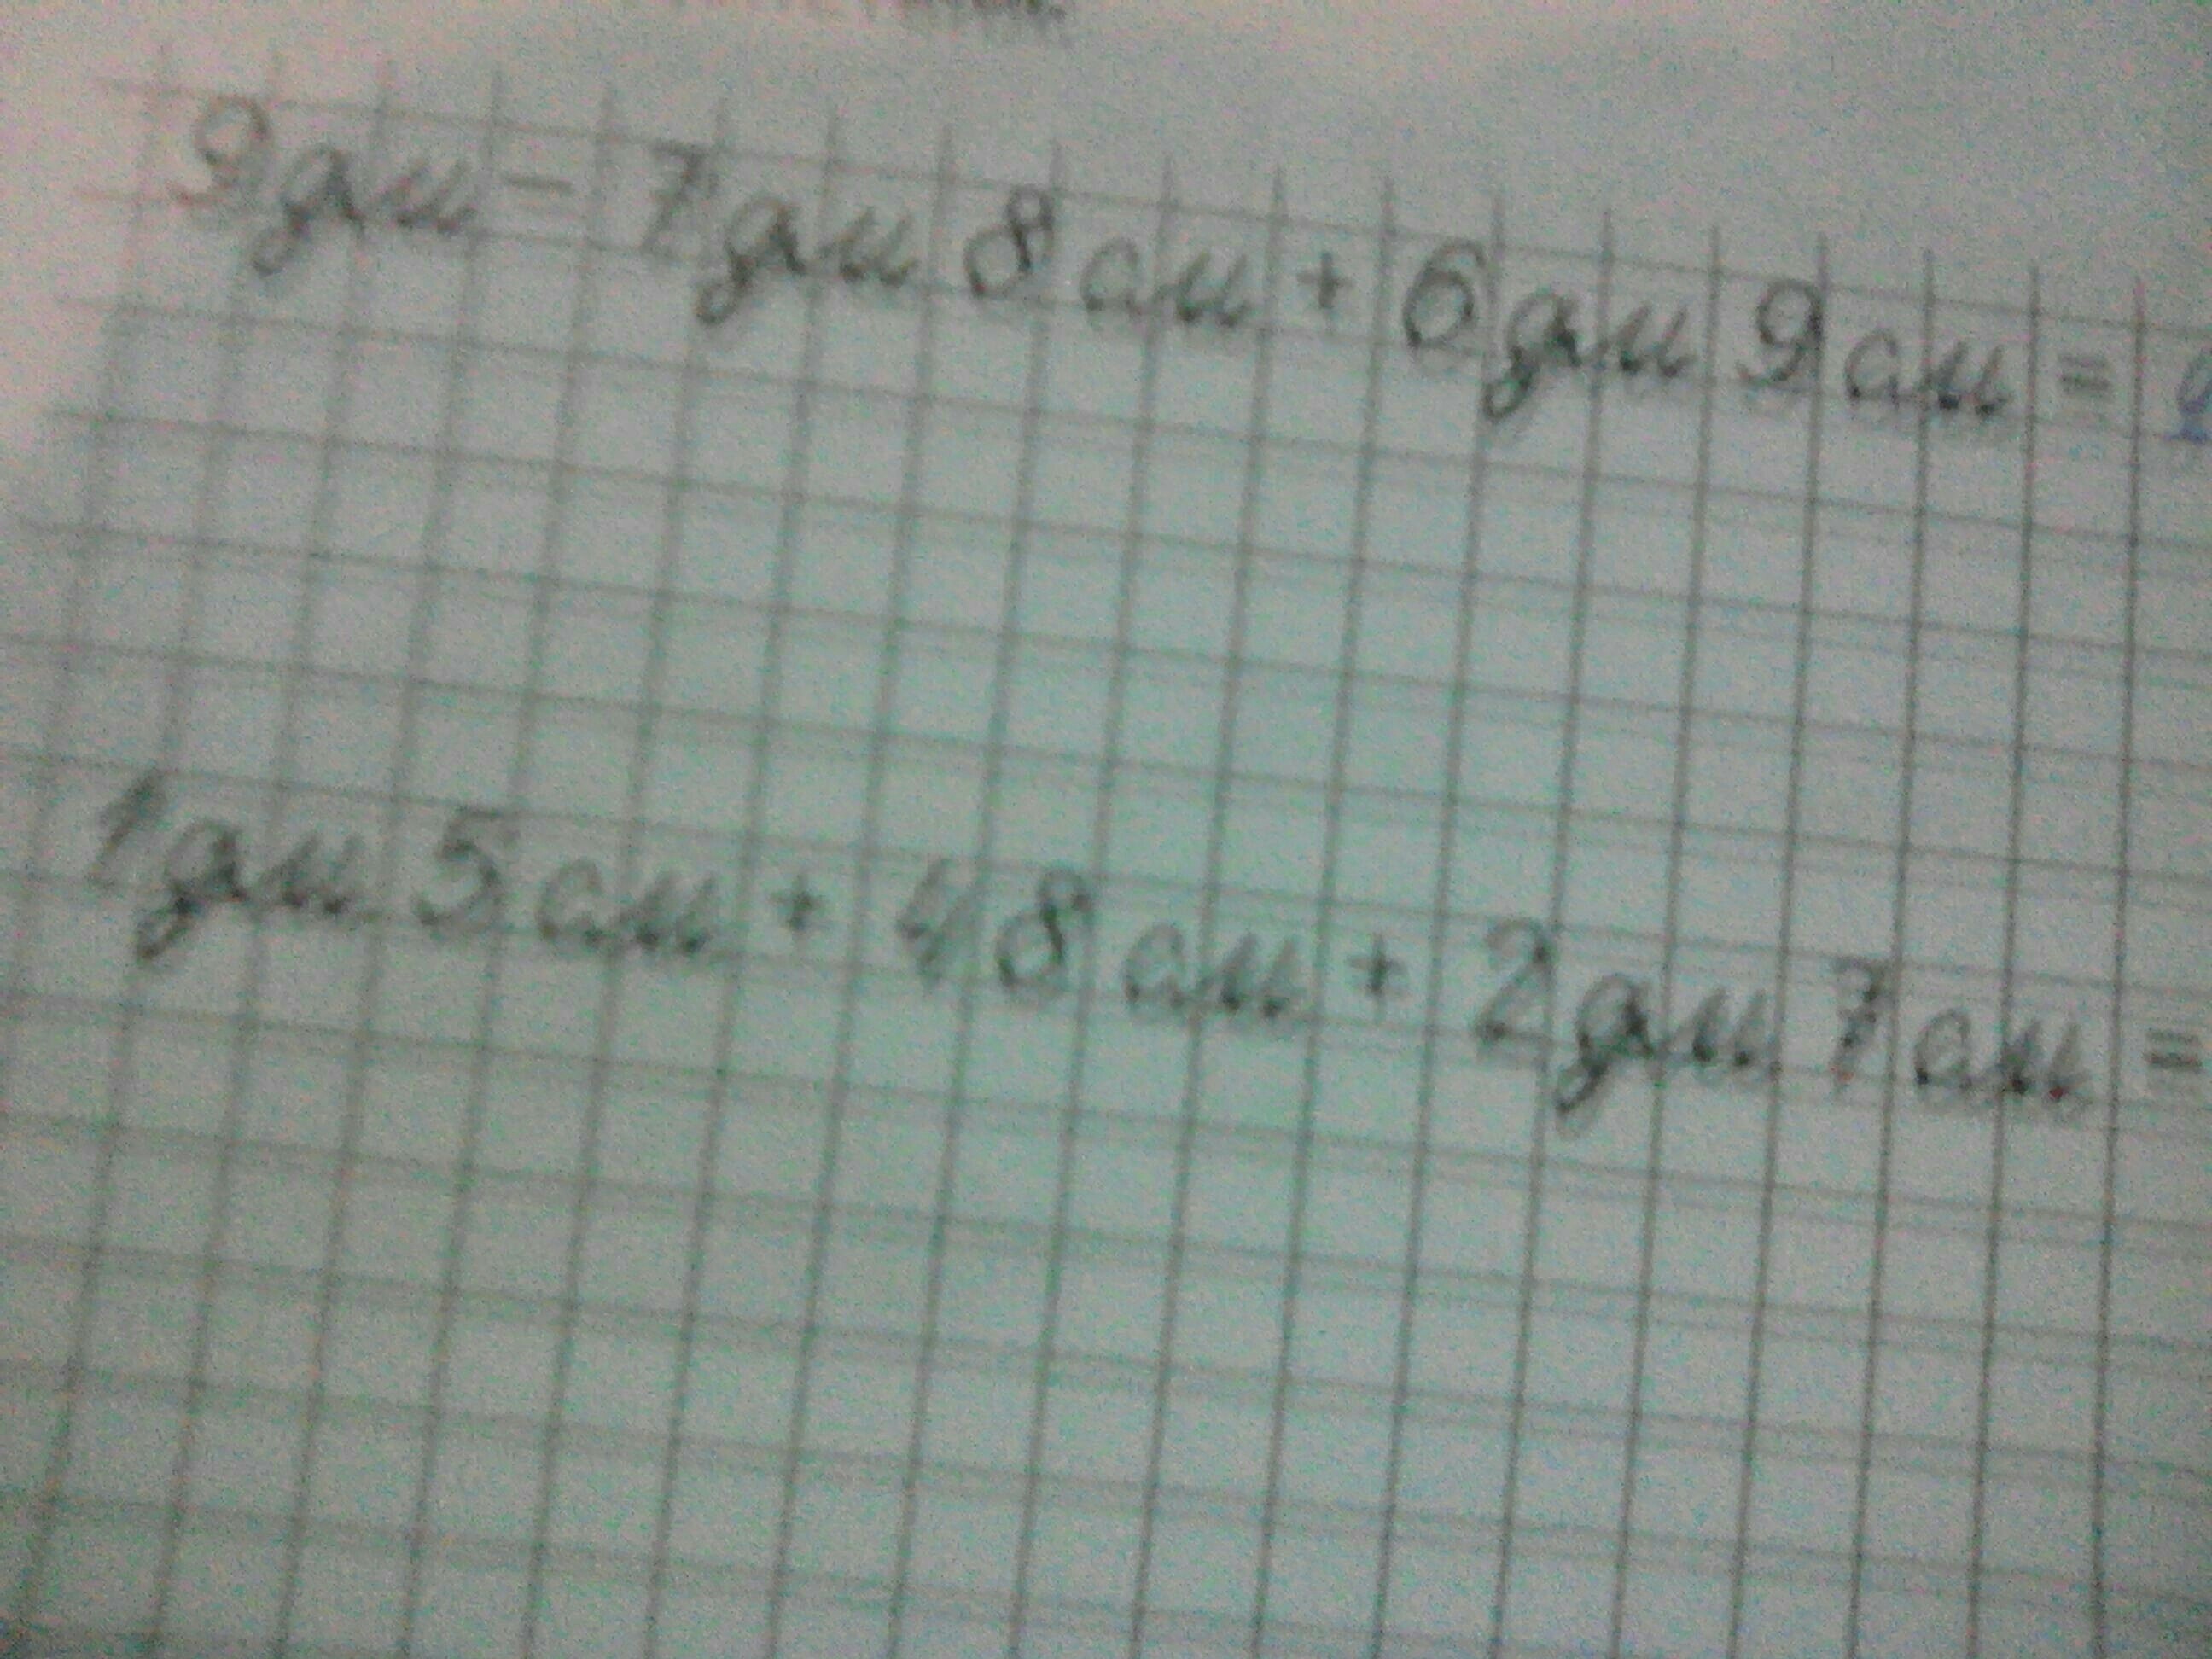 9дм - 7дм 8см + 6дм 9см =
1дм 5см + 48см + 2дм 7см =